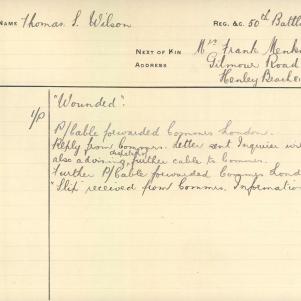 NAME Thomas S. Wilson REG. &C. 50th Battl
NEXT OF KIN Mrs Frank Menk
ADDRESS Gilmour Road
Henley Beach
"Wounded".
P/Cable forwarded Commrs London.
Reply from Commrs. Letter sent Inquirer
also advising despatch further cable to Commrs.
Further P/Cable forwarded Commrs Lond
"Slip" received from Commrs. Informatio